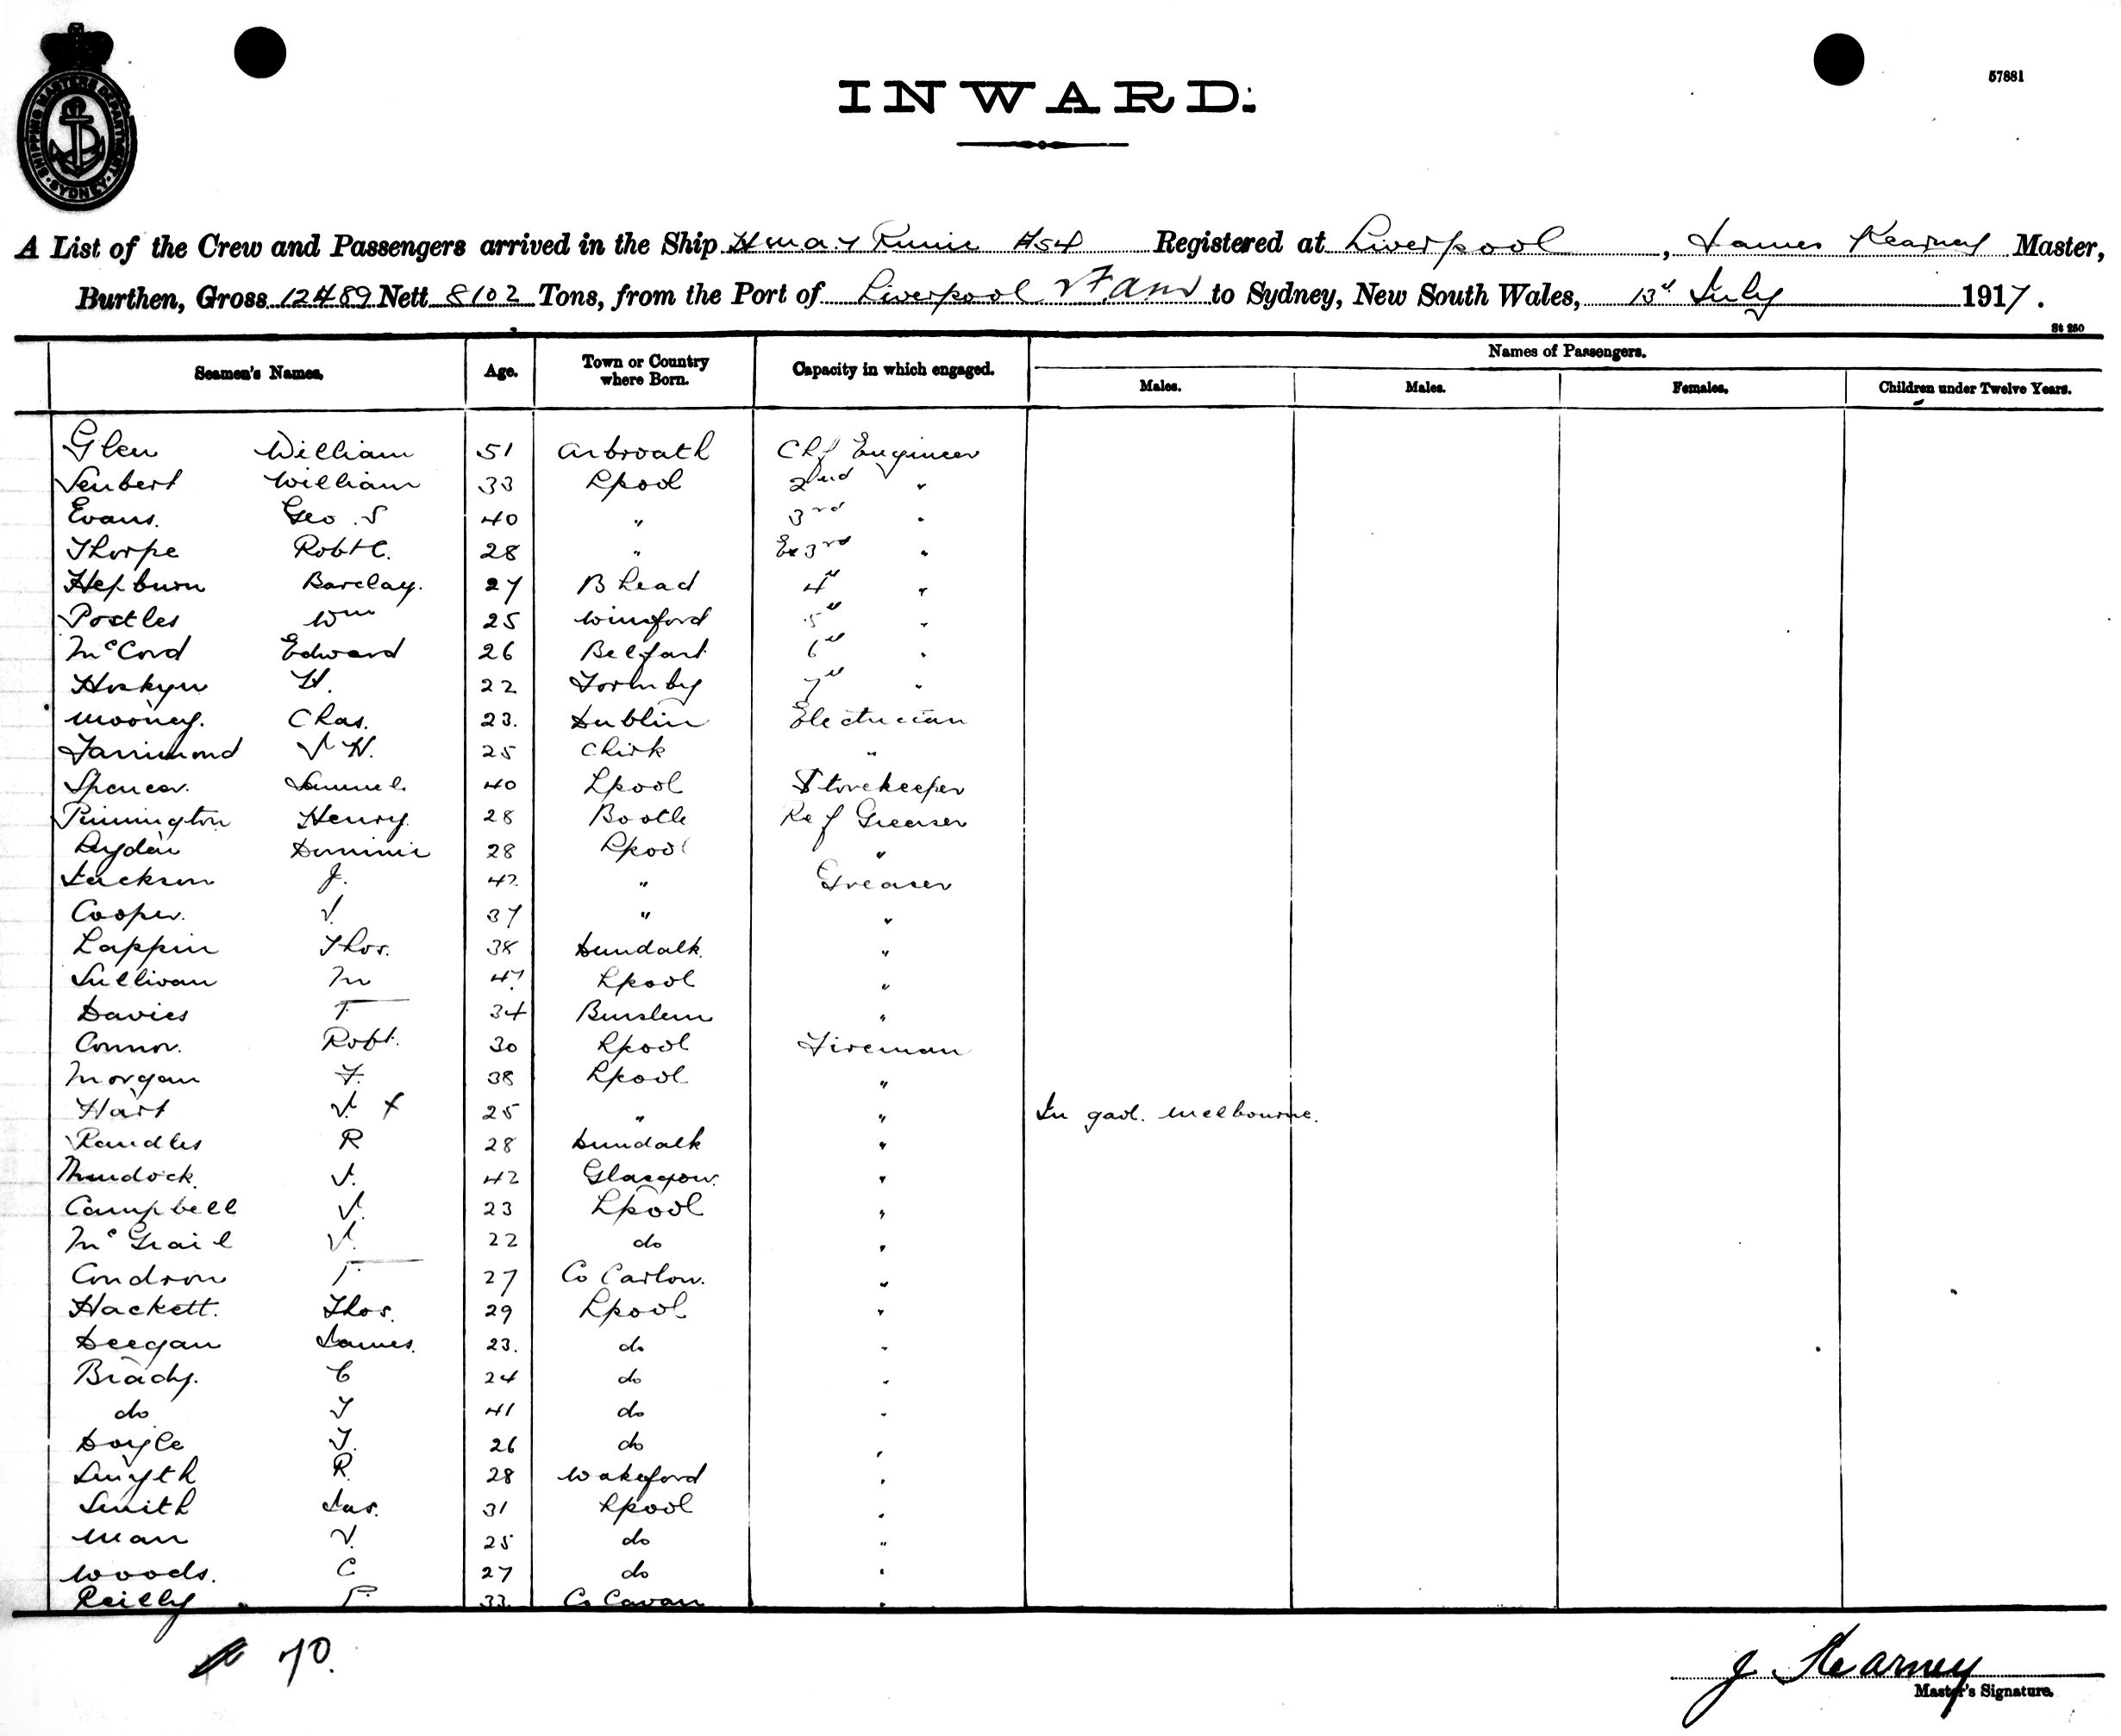 SHIPPING MASTERS DEPARTMENT SYDNEY
INWARD.
57881
A List of the Crew and Passengers arrived in the Ship HMAT Runic A54 Registered at Liverpool, James Kearney Master,
Burthen, Gross 12489 Nett 8102 Tons, from the Port of Liverpool to Sydney, New South Wales, 13th July 1917.
St 250
Seamen's Names. Age. Town or Country where Born. Capacity in which engaged. Names of Passengers.
Males. Males. Females. Children under Twelve Years.
Glen William 51 Arbroath Chf Engineer
Seubert William 33 Lpool 2nd "
Evans. Geo. S 40 " 3rd "
Thorpe Robt C. 28 " Ex 3rd "
Hepburn Barclay. 27 B head 4th "
Postles Wm 25 Winsford 5th "
McCord Edward 26 Belfast 6th "
Hoskyn H. 22 Formby 7th "
Mooney. Chas. 23. Dublin Electrician
J H. 25 Chirk "
Spencer. Samuel. 40 Lpool Storekeeper
Pinnington Henry 28 Bootle Ref Greaser
Dominic 28 Lpool "
Jackson J. " Greaser
Cooper. J. 37 " "
Lappin Thos. 38 Dundalk. "
Sullivan M Lpool "
Davies T. 34 Burslem "
Connor. Robt. 30 Lpool Fireman
Morgan F. 38 Lpool "
Hart J. x 25 " " In gaol. Melbourne.
Randles R 28 Dundalk "
Murdock. J. 42 Glasgow. "
Campbell J. 23 Lpool "
McGrail J. 22 do "
Condron T 27 Co Carlow. "
Hackett. Thos. 29 Lpool "
Deegan James. 23. do "
Brady. C 24 do "
do T 41 do "
Doyle T. 26 do "
Smyth R. 28 Wakeford "
Smith Jas. 31 Lpool "
Man J. 25 do "
Woods. C 27 do "
Reilly P. 33 Co Cavan "
70.
J. Kearney
Master's Signature.